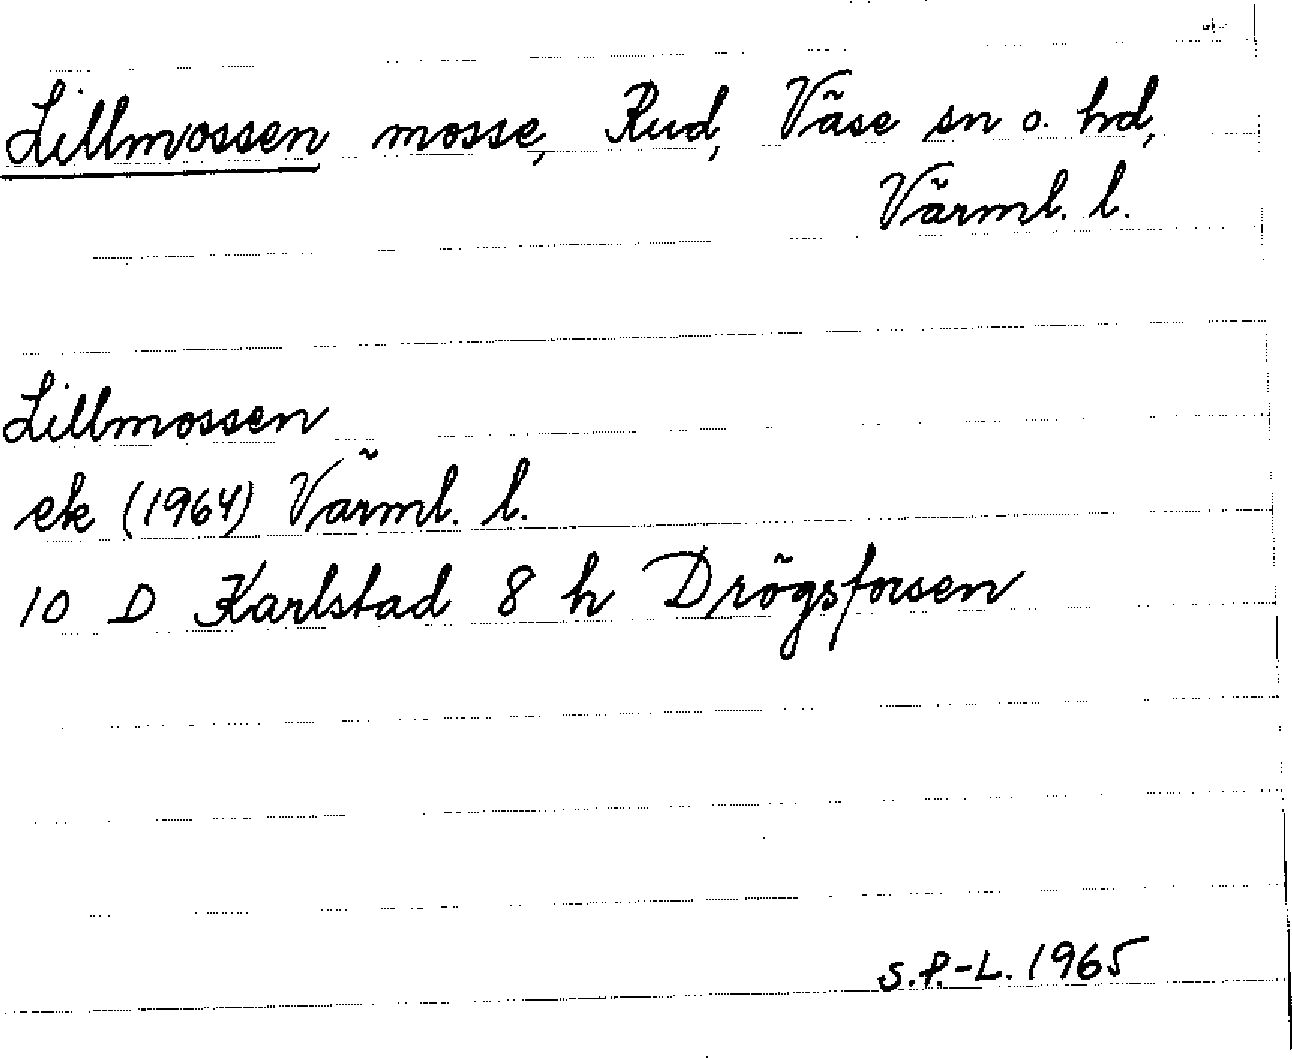 Lillmossen mosse, Rud, Väse sn o. hd,
Värml. l.
Lillmossen
ek (1964) Värml. l.
10 D Karlstad 8 h Drögsforsen
S.P.-L. 1965